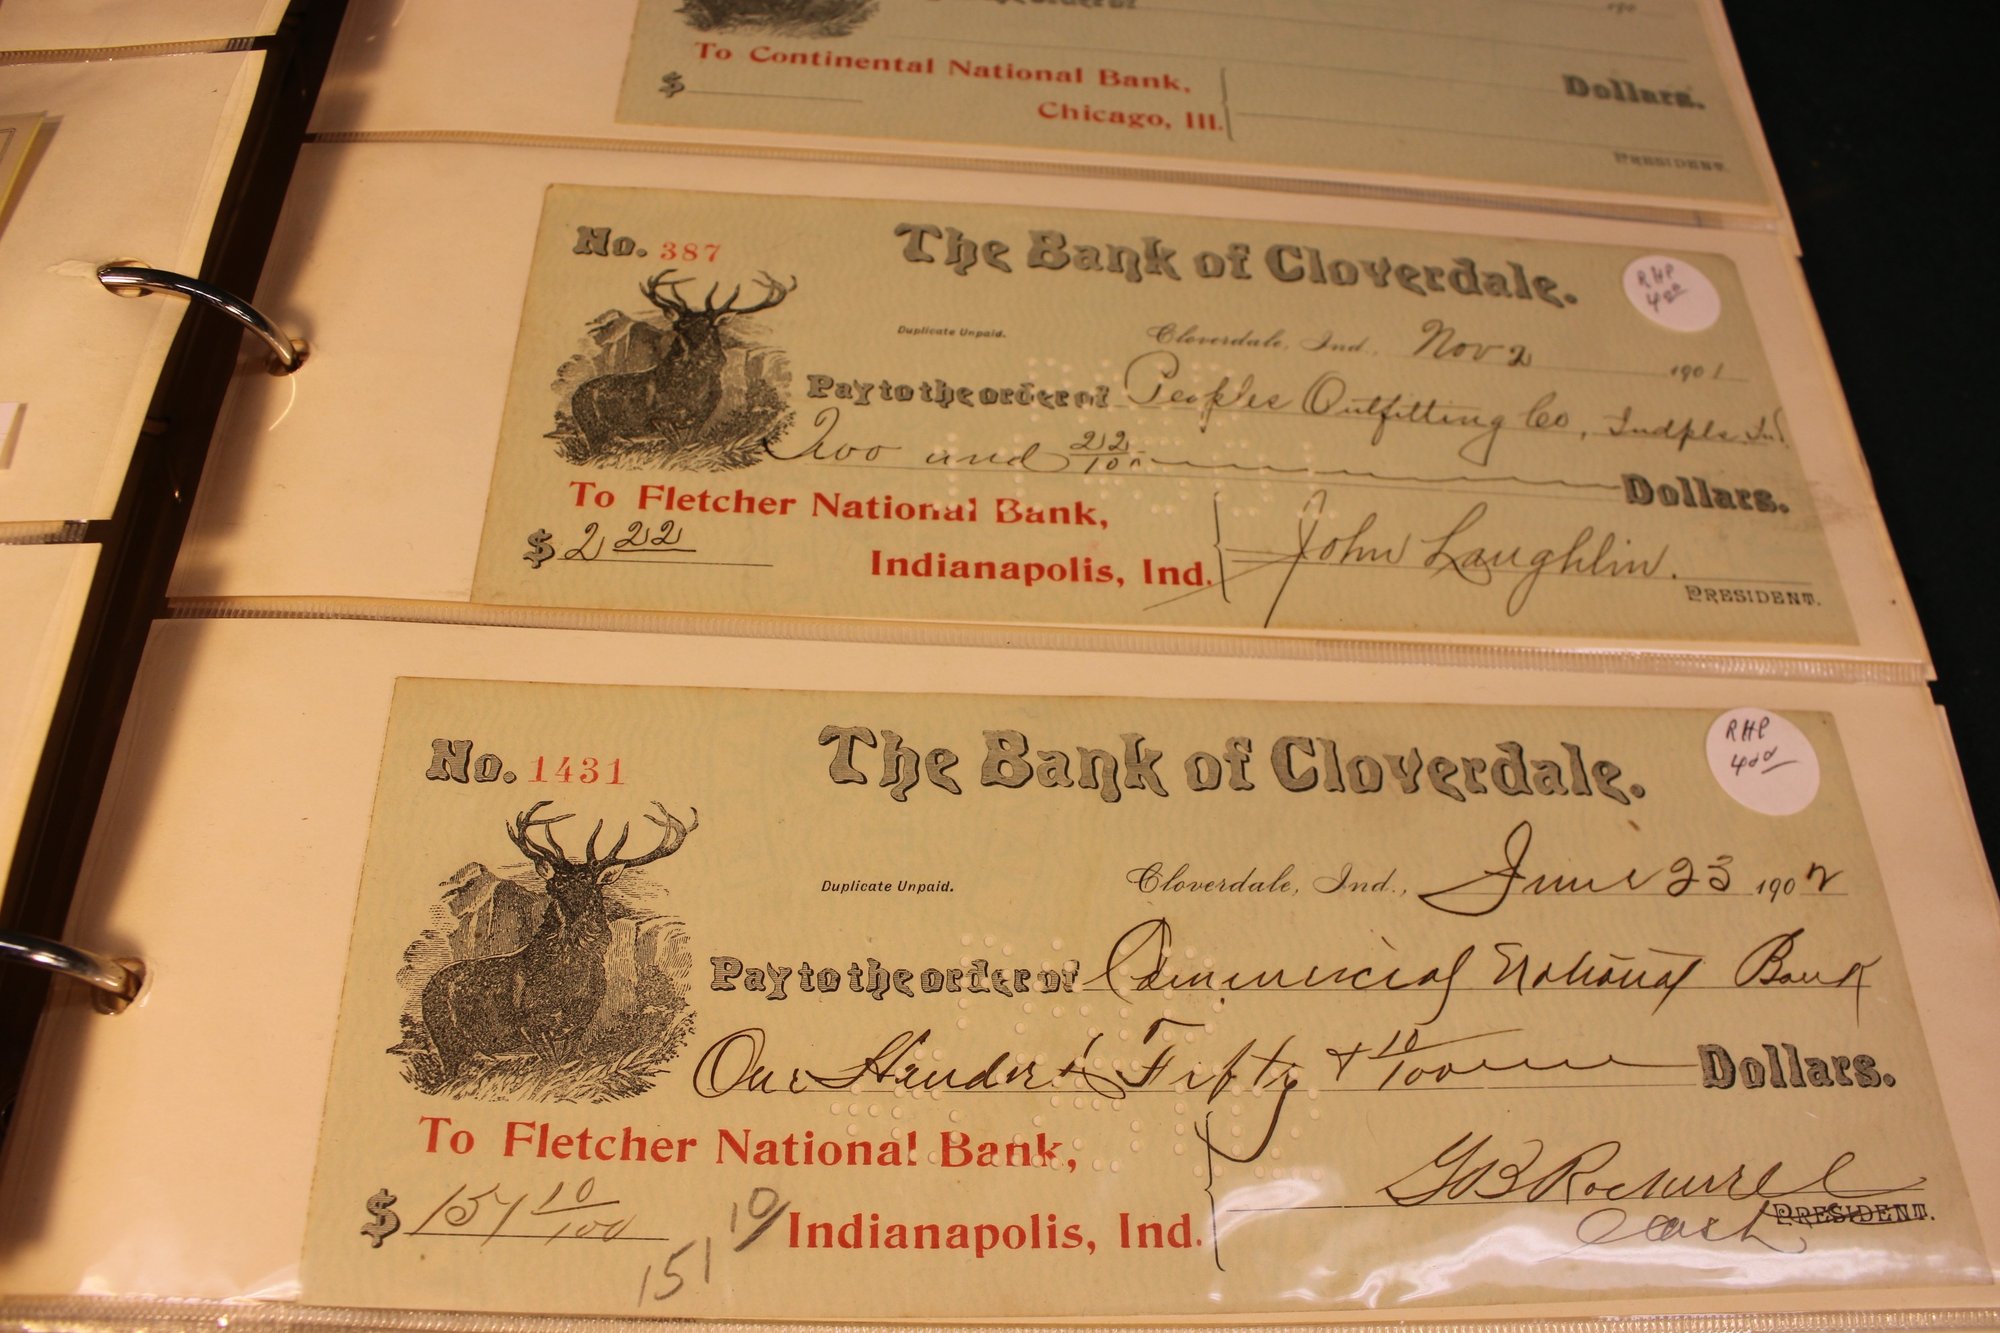 To Continental National Bank,
Chicago, Ill.
$
Dollars.
PRESIDENT.
No. 387
The Bank of Cloverdale.
RHP
4.00
Duplicate Unpaid.
Cloverdale, Ind., Nov 2 1901
Pay to the order of Peoples Outfitting Co, Indpls Ind
Two and 22/100 Dollars.
To Fletcher National Bank,
$ 2 22
Indianapolis, Ind.
John Laughlin.
PRESIDENT.
No. 1431
The Bank of Cloverdale.
RHP
4.00
Duplicate Unpaid.
Cloverdale, Ind., June 23 1902
Pay to the order of Commercial National Bank
One Hundred Fifty & 10/100 Dollars.
To Fletcher National Bank,
$ 151 10/100
151 10/
Indianapolis, Ind.
PRESIDENT.
Cash